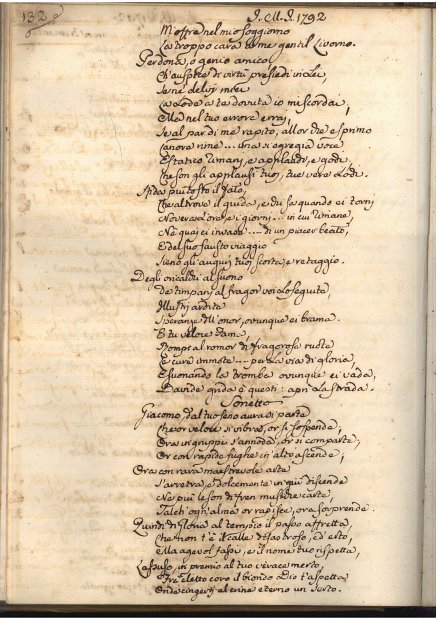 132
I. M. I. 1792
M'offre nel mio soggiorno
La troppo cara a me gentil Livorno.
Perdona, o genio amico
Ch'auspice di virtù presiedi in Lei,
Se ne' deliri miei
La Lode a te dovuta io miscordai,
Ella nel tuo errore errai,
Se al par di me rapito, allor che esprimo
Canore rime ... una sì egregia voce
Estatico rimani, e applaudi, e godi,
Che son gli applausi tuoi, tue vere Lodi.
Sfida piuttosto il Fato,
Che altrove il guida, e tu se quando ei torni
Novera l'ore, e i giorni ... in cui rimane,
Nè quai ei invase .... di un piacer beato,
E del suo fausto viaggio
Sieno gli augurj tuoi scorta, e retaggio.
Degli oricalchi al suono
De timpani al fragor voi lo seguite,
Illustri ardite
Speranze dell'onor, ovunque ei brama.
E tu veloce Fama,
Rompi al romor di fragorose ruote
Le cure immote .... per la via di gloria,
E suonando la tromba ovunque ei vada,
Davide grida è questi: apri la strada.
Sonetto
Giacomo, dal tuo seno aura si parte
Che or veloce si vibra, or si sospende,
Ora in gruppi s'annoda, or si comparte,
Or con rapide fughe in alto ascende,
Ora con rara maestrevole arte
S'arretra, e dolcemente in giù discende
Nè più le son di fren musiche carte,
Talch'ogn'alma or rapisce, ora sorprende.
Quindi di Gloria al tempio il passo affretta,
Che non t'è il calle disastroso, ed erto,
Ella agevol fassi, e il nome tuo rispetta,
Lassuso, in premio al tuo verace merto,
Fra eletto coro il biondo Dio t'aspetta
Onde cingerti al crine eterno un serto.